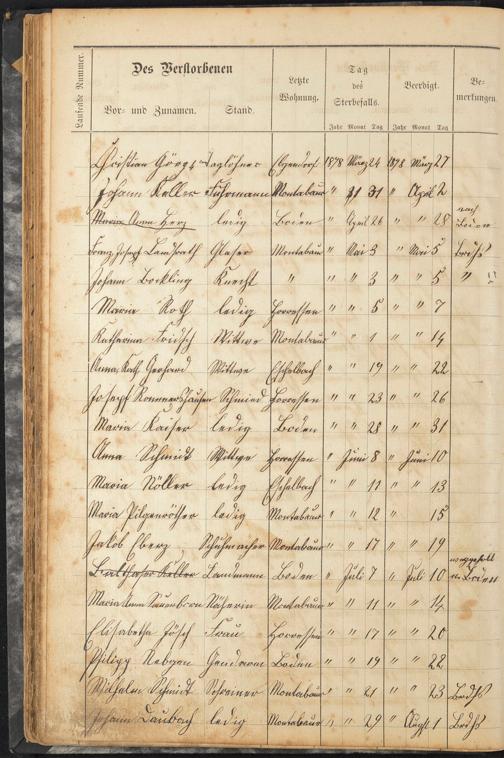 Laufende Nummer.
Des Verstorbenen
Vor- und Zunamen. Stand.
Letzte Wohnung.
Tag des Sterbefalls.
Jahr Monat Tag
Beerdigt.
Jahr Monat Tag
Bemerkungen
Christian Görg Taglöhner Elgendorf 1878 März 24 1878 März 27
Johann Keller Fuhrmann Montabaur " 31 " April 2
Maria Anna Herz ledig Boden " April 26 " " 28 nach Boden
Franz Joseph Glaser Montabaur " Mai 3 " Mai 5
Johann Knecht " " " 3 " " 5 "
Maria Roth ledig Horressen " " 5 " " 7
Katharina Wittwe Montabaur " " 1 " " 14
Anna Kath Gerhard Wittwe Eschelbach " " 19 " " 22
Joseph Schmied Horressen " " 23 " " 26
Maria Kaiser ledig Boden " " 28 " " 31
Anna Schmidt Wittwe Horressen " Juni 8 " Juni 10
Maria Nöller ledig Eschelbach " " " " 13
Maria ledig Montabaur " " 12 " 15
Jakob Eberz Schuhmacher Montabaur " " 17 " " 19
Balthasar Keller Landmann Boden " Juli 7 " Juli 10 n. Boden
Maria Anna Näherin Montabaur " " 11 " " 14
Elisabetha Frau Horressen " " 17 " " 20
Philipp Gendarm Boden " " 19 " " 22
Wilhelm Schmidt Schreiner Montabaur " " 21 " " 23
Johann Laubach ledig Montabaur " " 29 " Augst 1